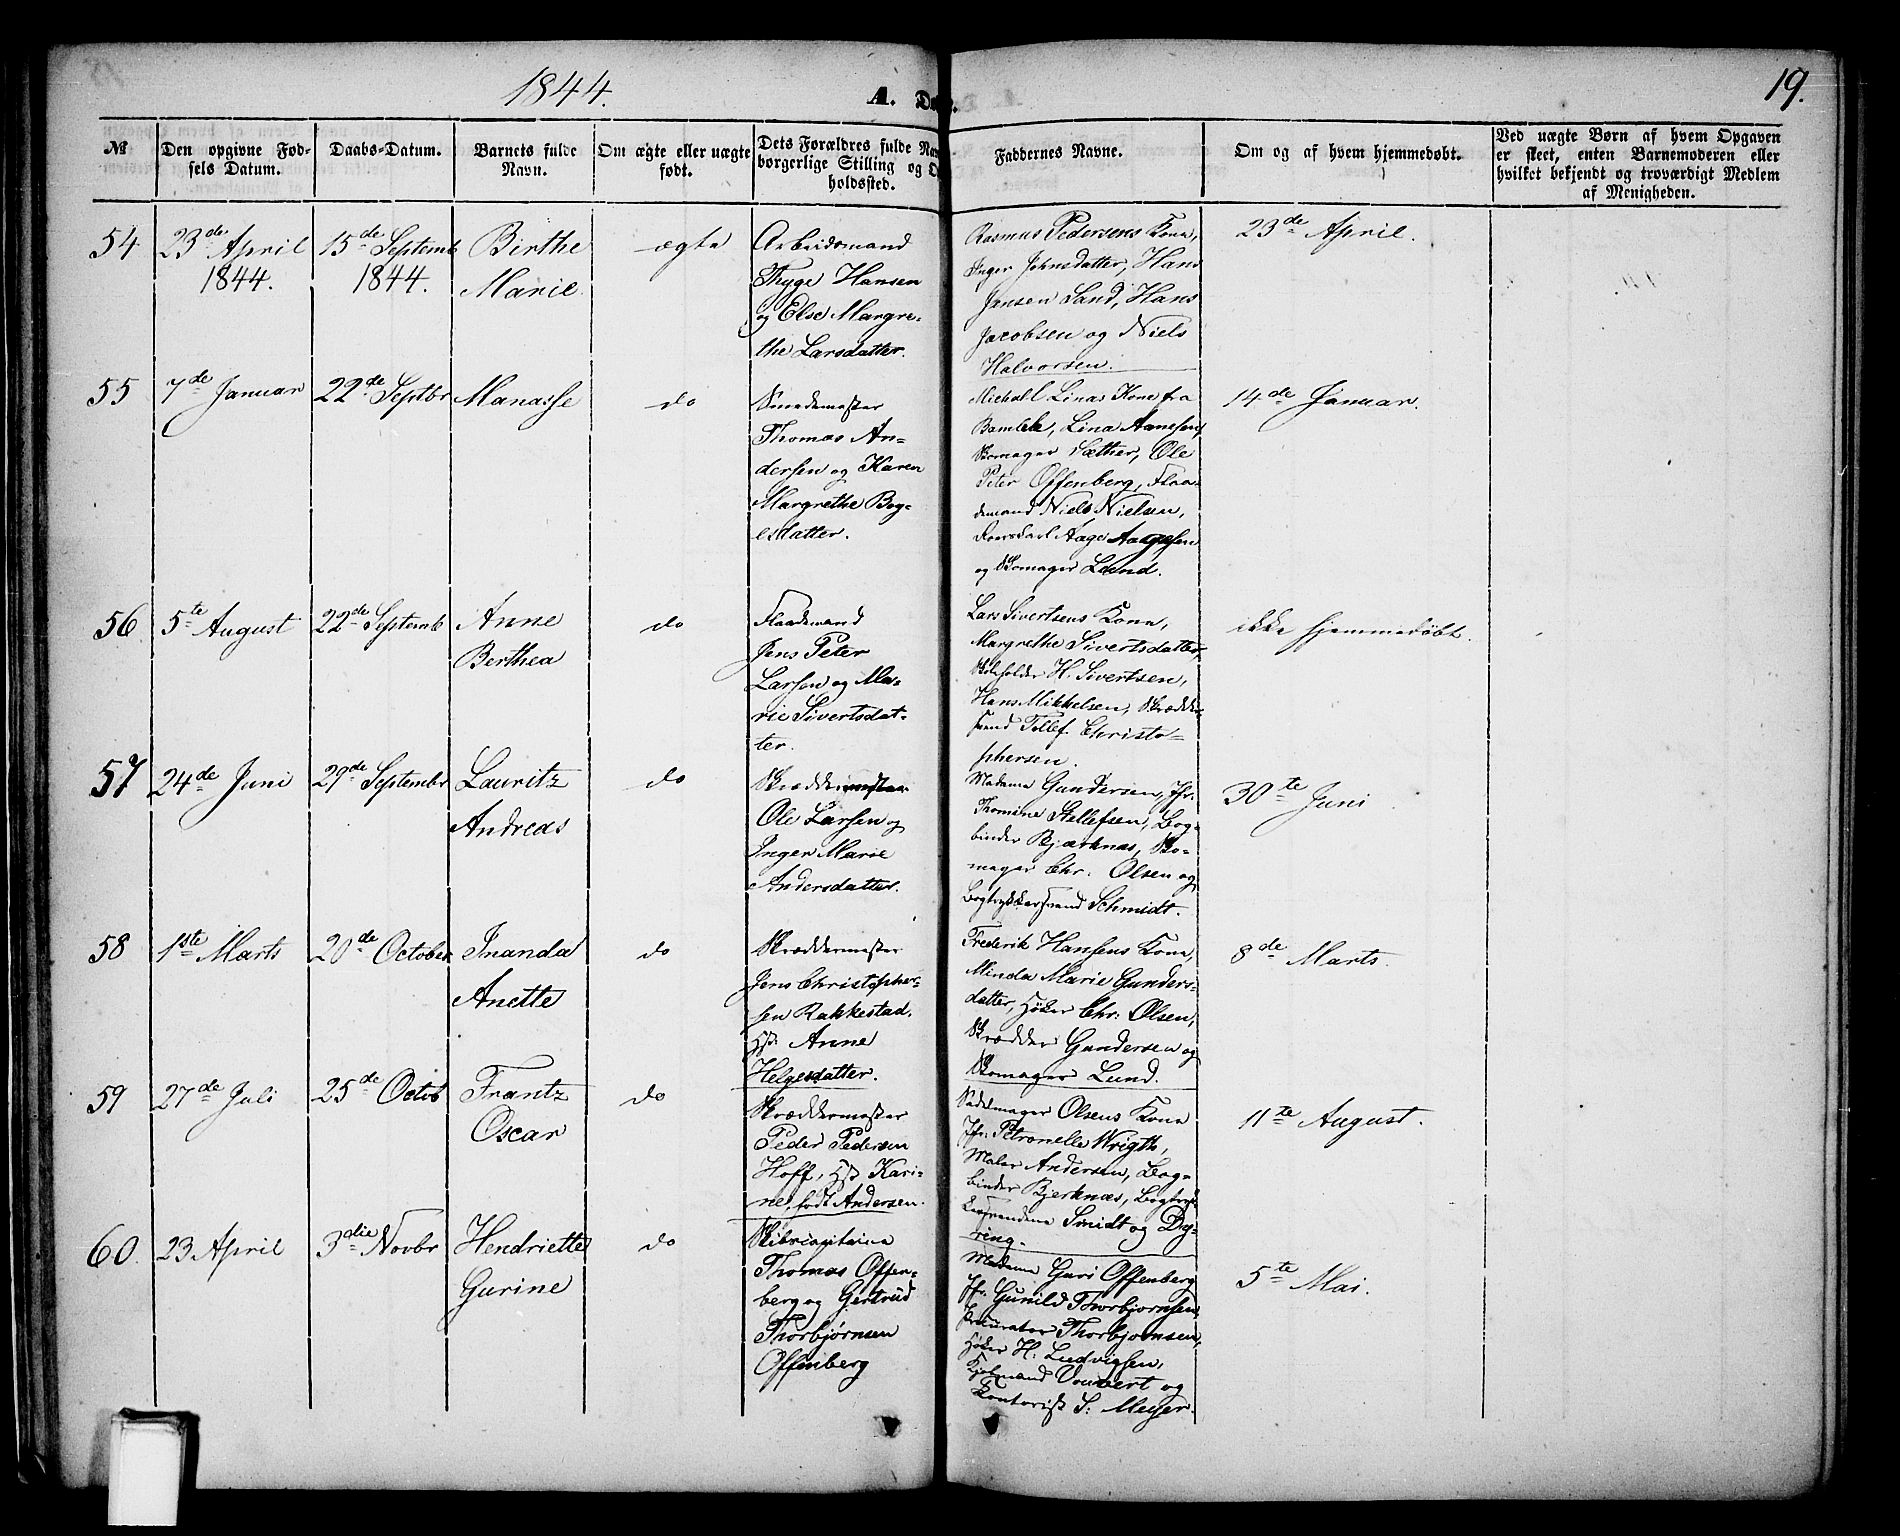 1844.
A. Døbte.
19.
№
Den opgivne Fødsels Datum.
Daabs-Datum.
Barnets fulde Navn.
Om ægte eller uægte født.
Dets Forældres fulde Nav
borgerlige Stilling og O
holdssted.
Faddernes Navne.
Om og af hvem hjemmedøbt.
Ved uægte Børn af hvem Opgaven
er skeet, enten Barnemoderen eller
hvilket bekjendt og troværdigt Medlem
af Menigheden.
54
23de April
1844.
15de Septemb
1844.
Birthe
Marie
ægte
Arbeidsmand
Thyge Hansen
og Else Margre-
the Larsdatter.
Rasmus Pedersens Kone,
Inger Johnsdatter, Hans
Jansen Sand, Hans
Jacobsen og Niels
Halvorsen.
23de April.
55
7de Januar
22de Septbr
Manasse
do
Smedemester
Thomas An-
dersen og Karen
Margrethe Boy-
esdatter.
Michael Linas Kone fra
Bamble, Lina Aanesen,
Skomager Sæther, Ole
Peter Offenberg, Flaa-
demand Niels Nielsen,
Aage Aagesen
og Skomager Lund.
14de Januar.
56
5te August
22de Septemb
Anne
Berthea
do
Flaademand
Jens Peter
Larsen og Ma-
rie Sivertsdat-
ter.
Lars Sivertsens Kone,
Margrethe Sivertsdatter,
Skoleholder H. Sivertsen,
Hans Mikkelsen, Skrædder-
svend Tellef Christo-
phersen.
ikke hjemmedøbt.
57
24de Juni
29de Septembr
Lauritz
Andreas
do
Skræddermester
Ole Larsen og
Inger Marie
Andersdatter.
Madame Gundersen, Jfr.
Thomine Stellefsen, Bog-
binder Bjærknæs, Sko-
mager Chr. Olsen og
Bogtrykkersvend Schmidt.
30te Juni
58
1ste Marts
20de October
Inanda
Anette
do
Skræddermester
Jens Christopher-
sen Rakkestad.
Hst. Anne
Helgesdatter.
Frederik Hansens Kone,
Minda Marie Gunders-
datter, Høker Chr: Olsen,
Skrædder Gundersen og
Skomager Lund.
8de Marts.
59
27de Juli
25de Octob
Frantz
Oscar
do
Skræddermester
Peder Pedersen
Hoff, Hst. Kari-
ne, født Andersen.
Sadelmager Olsens Kone
Jfr: Petronelle Wrigth,
Maler Andersen, Bog-
binder Bjerknæs, Bogtryk-
kersvendene Smidt og Dy-
ring.
11te August.
60.
23 April
3die Novbr
Hendriette
Gurine
do
Skibscapitaine
Thomas Offen-
berg og Gertrud
Thorbjørnsen
Offenberg
Madame Guri Offenberg
Jfr. Gunild Thorbjornsen,
Procurator Thorbjornsen,
Høker H: Ludvigsen,
Kjøbmand Vouvert og
Kontorist S: Meyer.
5te Mai.